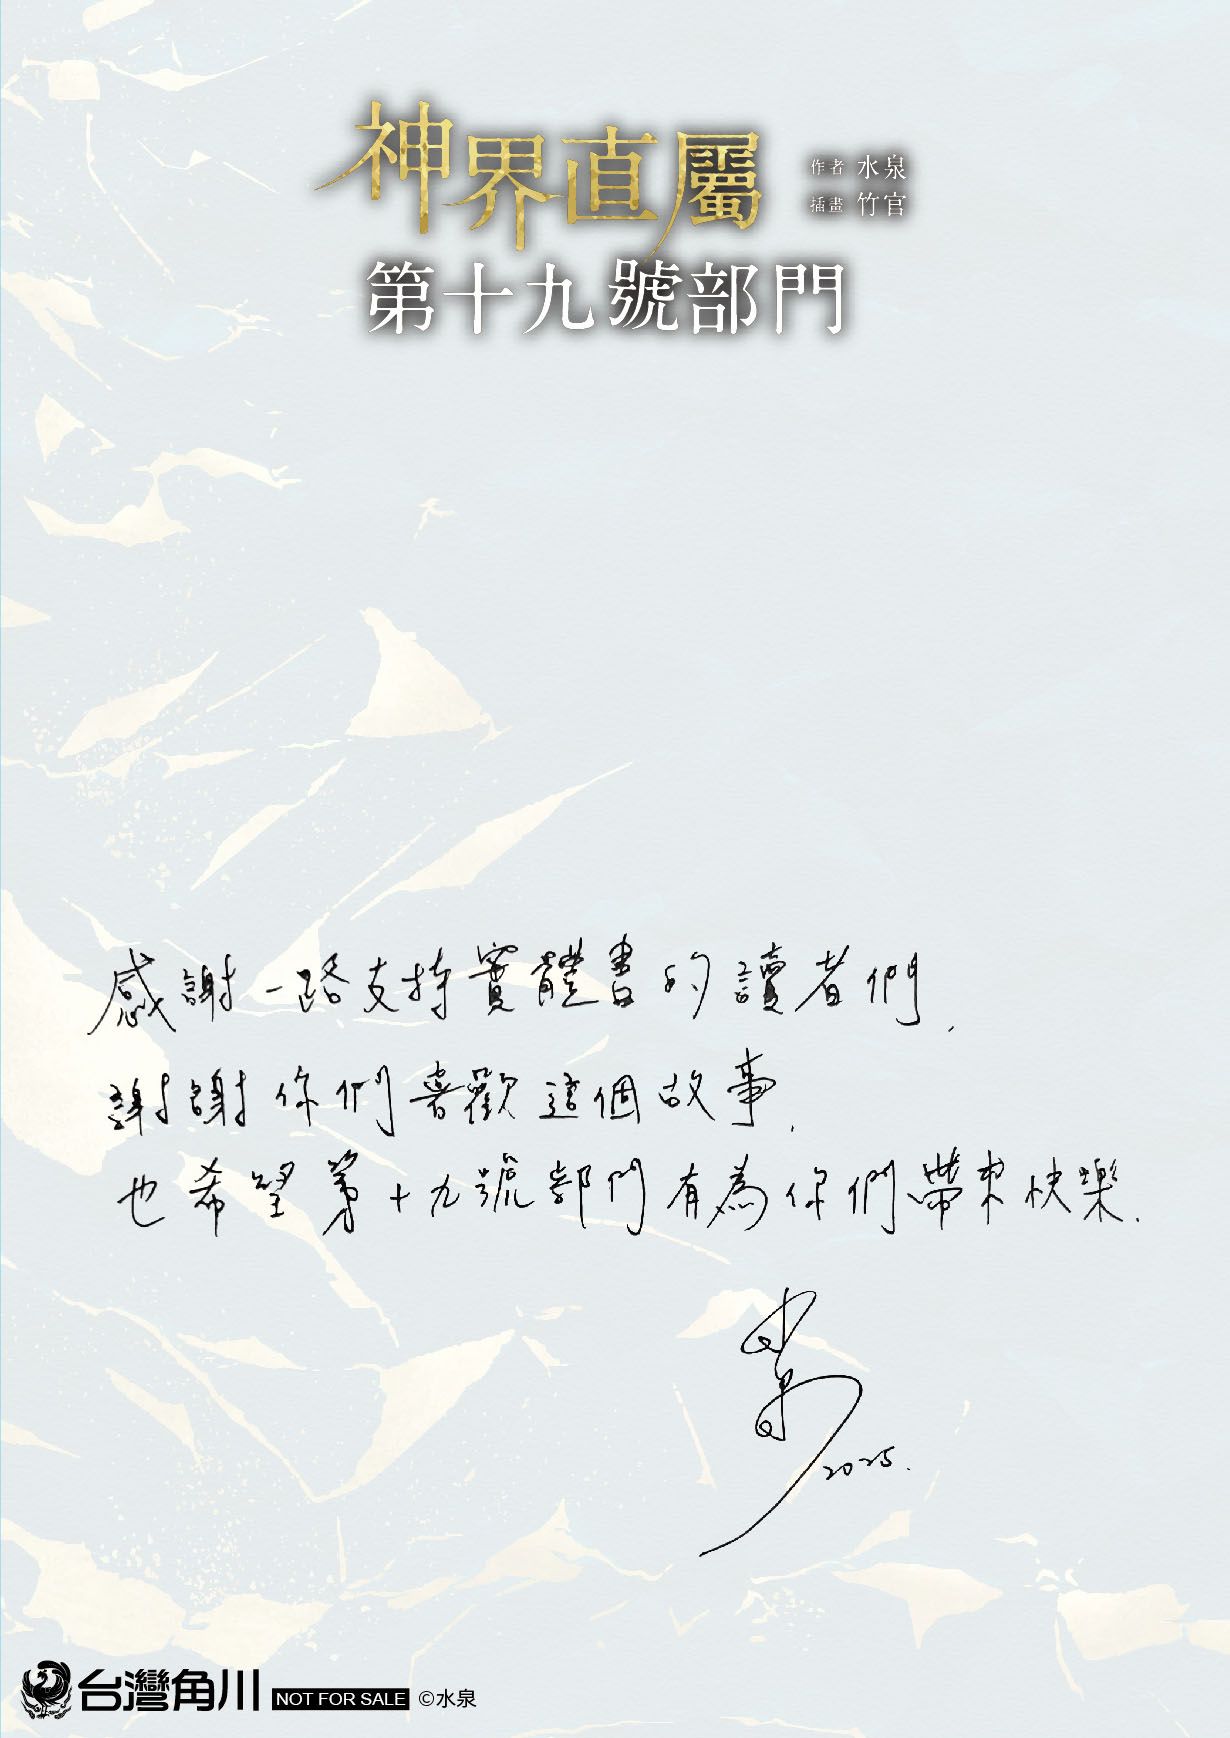 神界直屬
作者 水泉
插畫 竹官
第十九號部門
感謝一路支持實體書的讀者們.
謝謝你們喜歡這個故事.
也希望第十九號部門有為你們帶來快樂.
2025.
台灣角川 NOT FOR SALE ©水泉